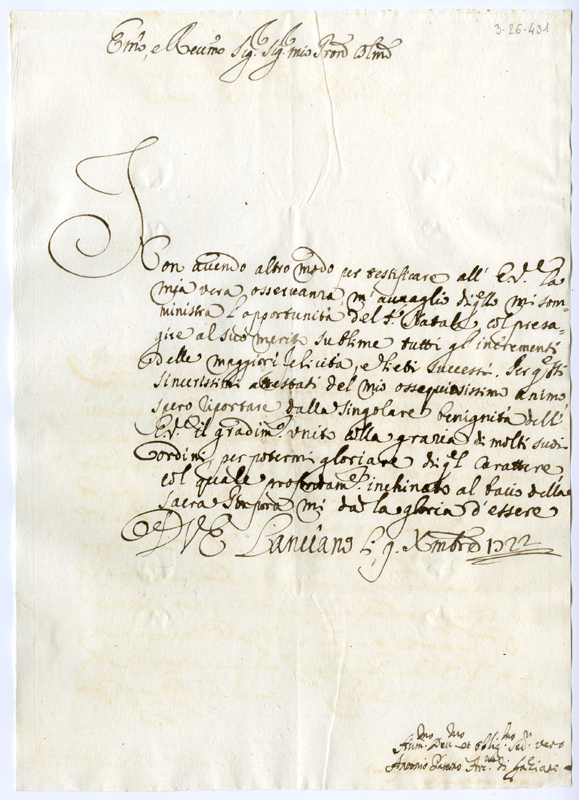 3-26-431
Em̃o, e Reum̃o Sig.r Sig.r mio Pron̄ Col.mo
Non auendo altro modo per testificare all' E.V. la
mia vera osseruanza, m' auuaglio di q.llo mi som-
ministra l'opportunità del S. Natale, col presa-
gire al suo merito sublime tutti gl' incrementi
delle maggiori felicità, e lieti successi. Per q.sti
sincerissimi attestati del mio ossequiosissimo animo
spero riportare dalla singolare benignità dell'
E.V. il gradim.to vnito colla grazia di molti suoi
ordini, per potermi gloriare di q.l Carattere
col quale profondam.te inchinato al bacio della
Sacra Porpora mi dà la gloria d'essere
D V E Lanciano li 9. Xmbre 1722
Hum.mo Deu.mo et Oblig.mo Ser.
Antonio Arc.